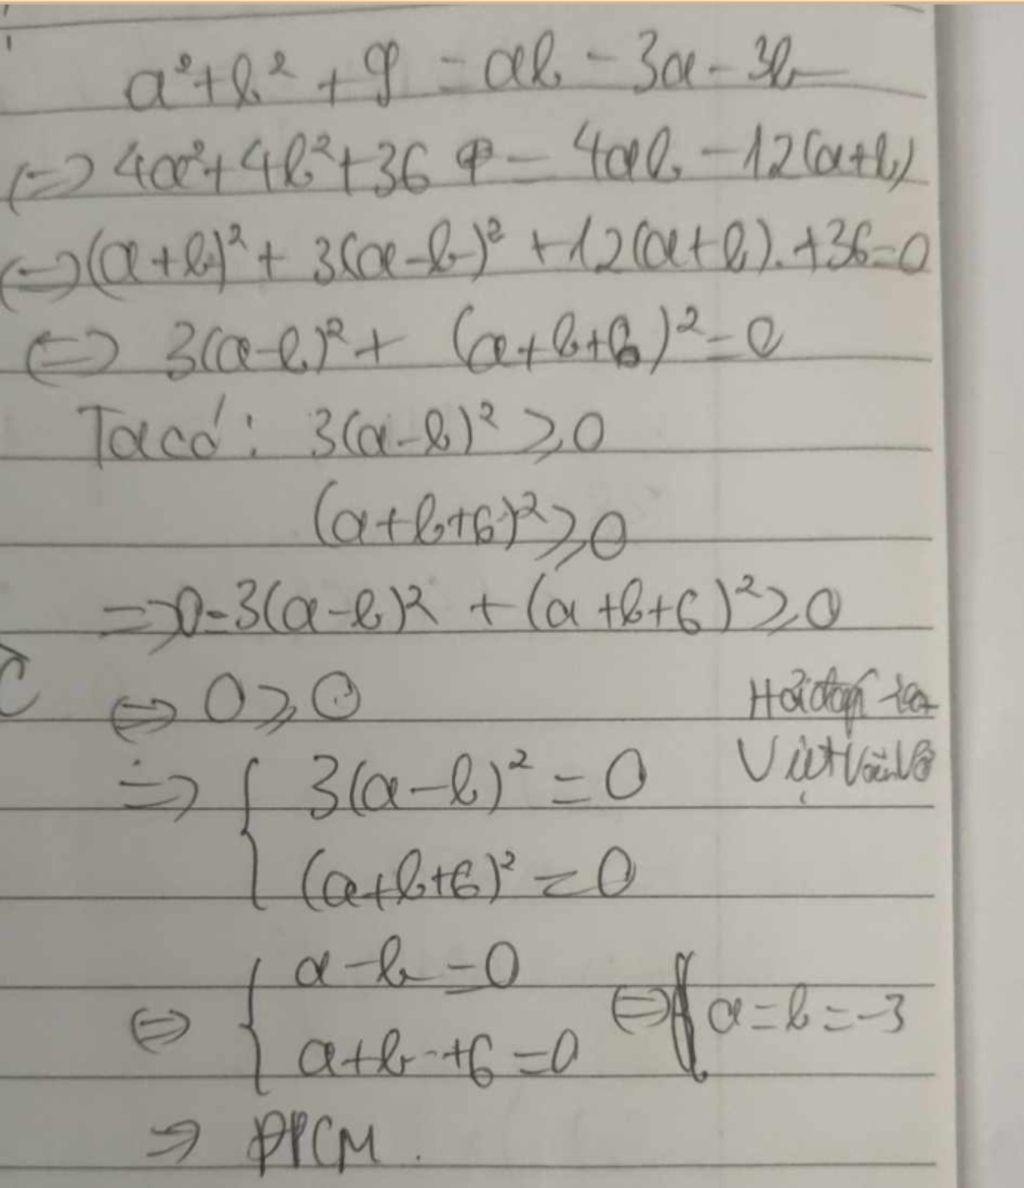 a² + b² + 9 = ab - 3a - 3b
⇔ 4a² + 4b² + 36 = 4ab - 12(a+b)
⇔ (a+b)² + 3(a-b)² + 12(a+b) + 36 = 0
⇔ 3(a-b)² + (a+b+6)² = 0
Ta có: 3(a-b)² ≥ 0
(a+b+6)² ≥ 0
⇒ 0 = 3(a-b)² + (a+b+6)² ≥ 0
⇔ 0 ≥ 0
⇒ { 3(a-b)² = 0
(a+b+6)² = 0
⇔ { a-b = 0
a+b+6 = 0 ⇔ { a = b = -3
⇒ ĐPCM.